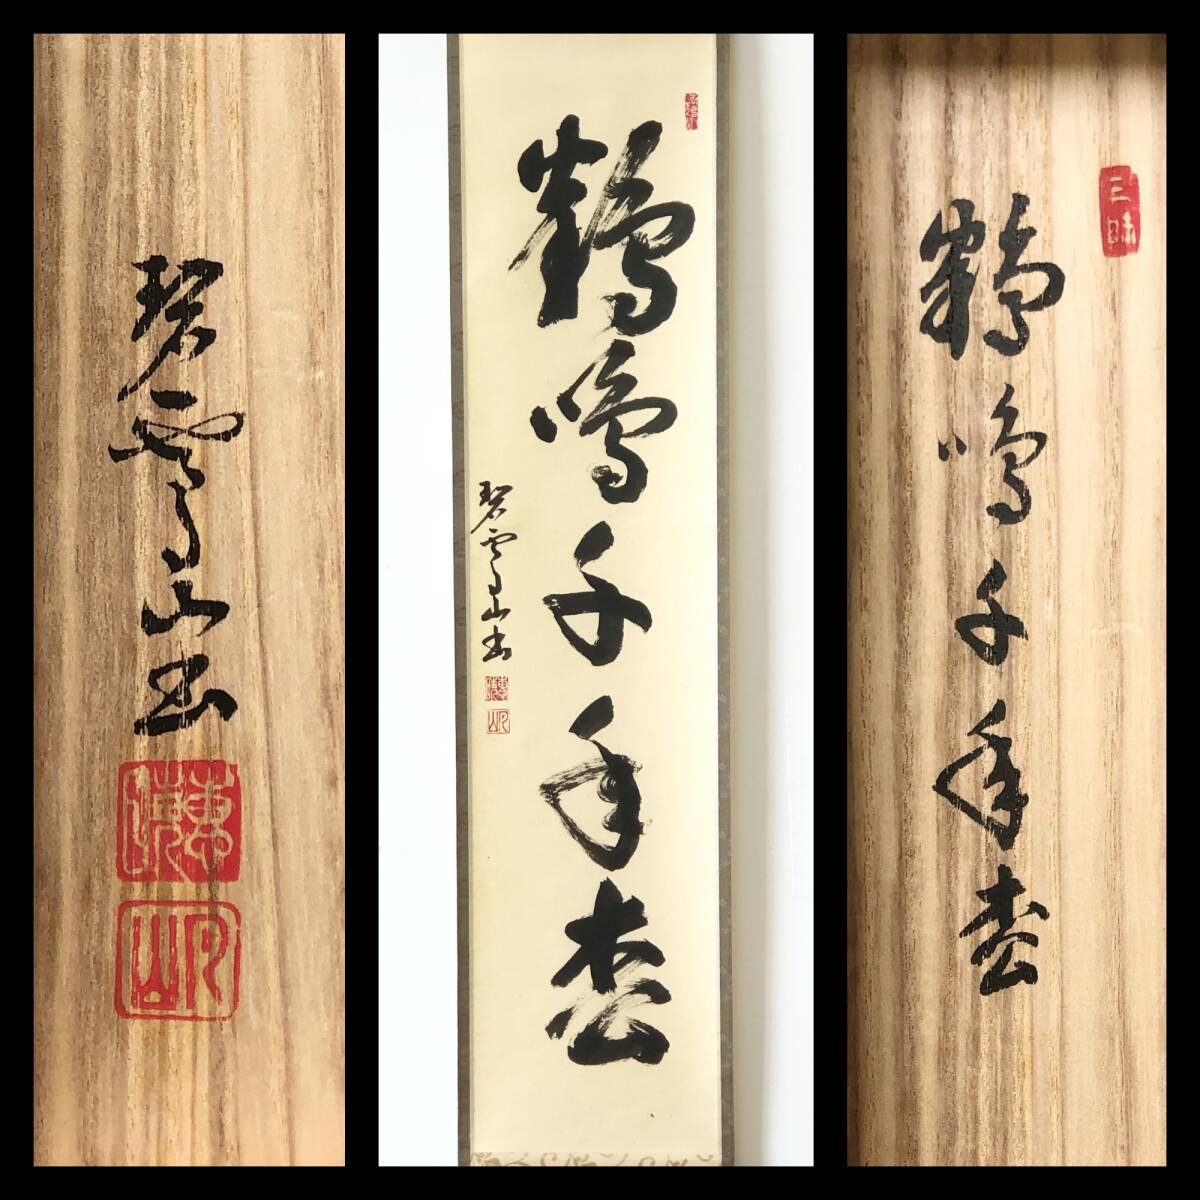 碧雲山書
鶴鳴千年枩
碧雲山書
三昧
鶴鳴千年枩